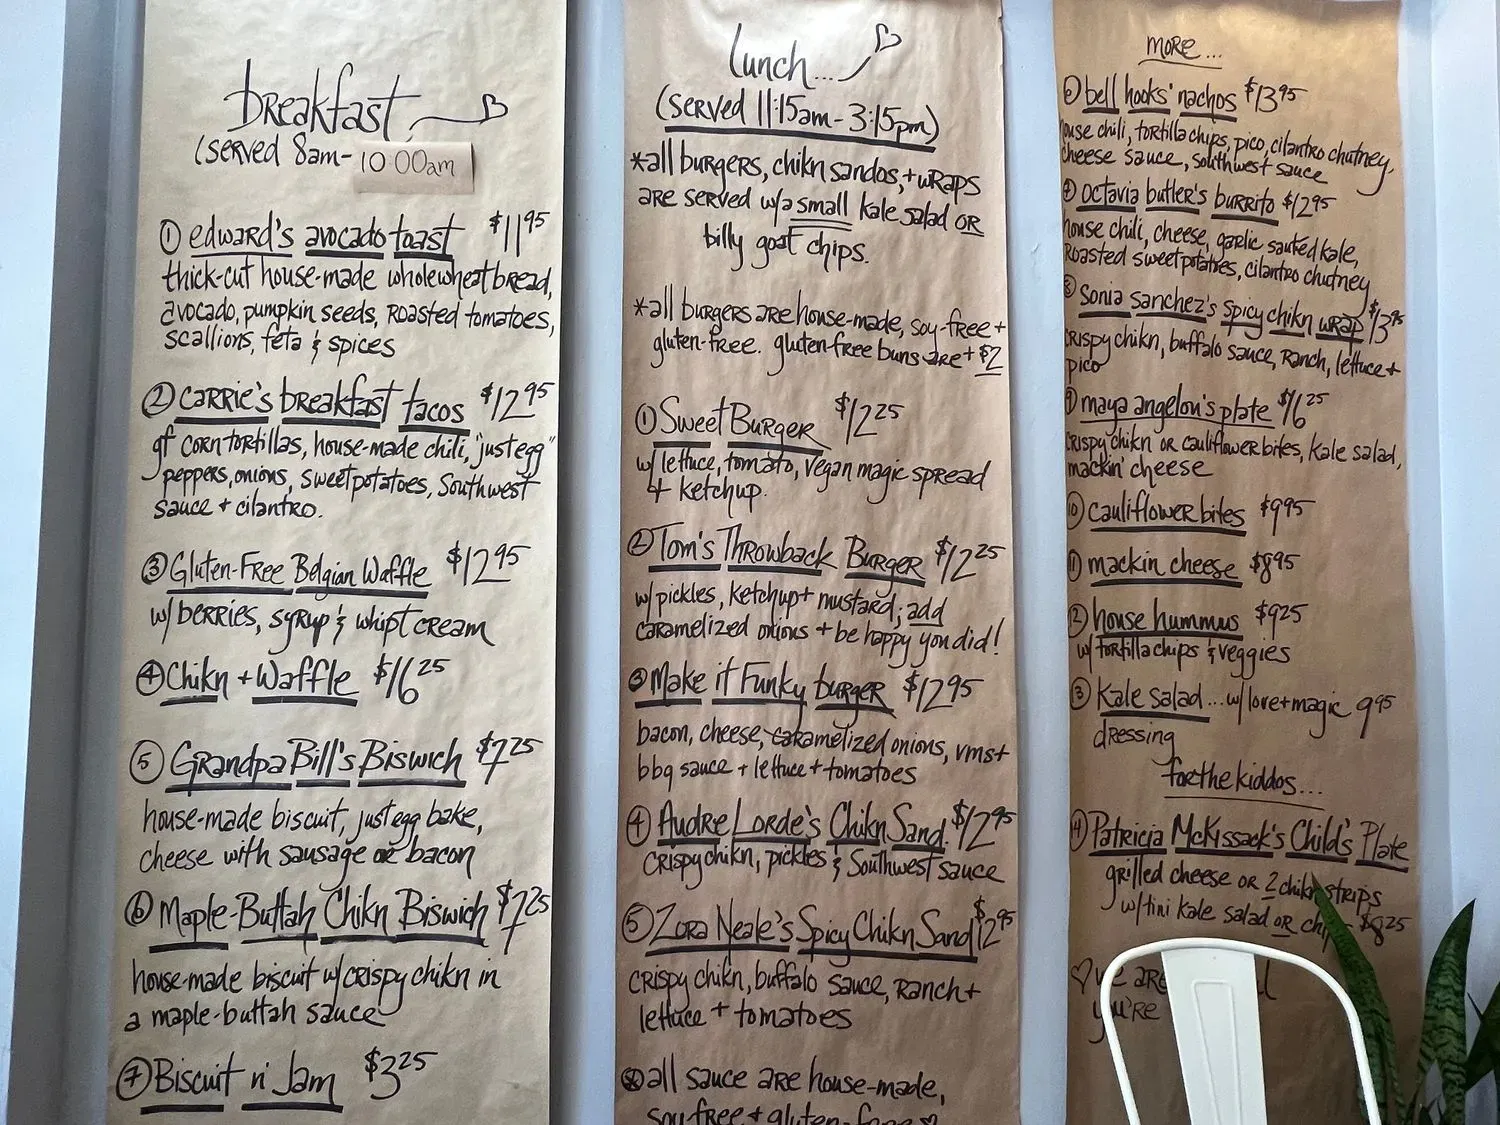 breakfast
(served 8am-10:00am
① edward's avocado toast $11.95
thick-cut house-made wholewheat bread,
avocado, pumpkin seeds, roasted tomatoes,
scallions, feta & spices
② carrie's breakfast tacos $12.95
gf corn tortillas, house-made chili, "just egg"
peppers, onions, sweet potatoes, southwest
sauce + cilantro.
③ Gluten-Free Belgian Waffle $12.95
w/ berries, syrup & whipt cream
④ Chikn + Waffle $16.25
⑤ Grandpa Bill's Biswich $7.25
house-made biscuit, just egg bake,
cheese with sausage or bacon
⑥ Maple-Buttah Chikn Biswich $7.25
house-made biscuit w/ crispy chikn in
a maple-buttah sauce
⑦ Biscuit n' Jam $3.25
lunch...
(served 11:15am-3:15pm)
*all burgers, chikn sandos, + wraps
are served w/a small kale salad OR
billy goat chips.
*all burgers are house-made, soy-free +
gluten-free. gluten-free buns are + $2
① Sweet Burger $12.25
w/ lettuce, tomato, vegan magic spread
+ ketchup.
② Tom's Throwback Burger $12.25
w/ pickles, ketchup + mustard; add
caramelized onions + be happy you did!
③ Make it Funky burger $12.95
bacon, cheese, caramelized onions, vms +
bbq sauce + lettuce + tomatoes
④ Audre Lorde's Chikn Sand. $12.95
crispy chikn, pickles & southwest sauce
⑤ Zora Neale's Spicy Chikn Sand $12.95
crispy chikn, buffalo sauce, ranch +
lettuce + tomatoes
all sauce are house-made,
soy-free + gluten-free
more...
⑥ bell hooks' nachos $13.95
house chili, tortilla chips, pico, cilantro chutney,
cheese sauce, southwest sauce
⑦ octavia butler's burrito $12.95
house chili, cheese, garlic sauted kale,
roasted sweet potatoes, cilantro chutney
⑧ sonia sanchez's spicy chikn wrap $13.95
crispy chikn, buffalo sauce, ranch, lettuce +
pico
⑨ maya angelou's plate $16.25
crispy chikn or cauliflower bites, kale salad,
mackin' cheese
⑩ cauliflower bites $9.95
⑪ mackin cheese $8.95
⑫ house hummus $9.25
w/ tortilla chips & veggies
⑬ kale salad... w/ love + magic 9.95
dressing
for the kiddos...
⑭ Patricia McKissack's Child's Plate
grilled cheese or 2 chikn strips
w/ tini kale salad OR chips $8.25
we are
you're